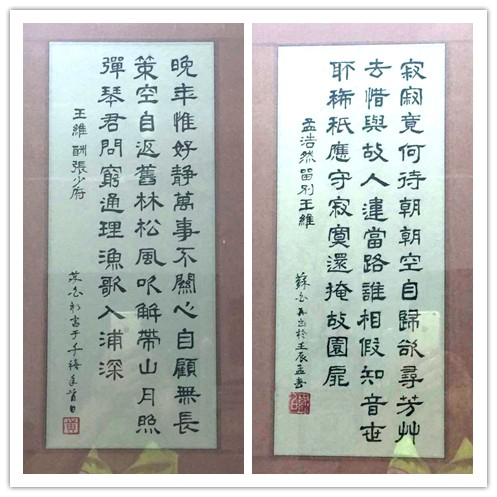 晚年惟好静萬事不關心自顧無長
策空自返舊林松風吹解帶山月照
彈琴君問窮通理漁歌入浦深
王維 酬張少府
寂寂竟何待朝朝空自歸欲尋芳艸
去惜與故人違當路誰相假知音世
所稀秖應守寂寞還掩故園扉
孟浩然 留別王維
蘇 於壬辰孟